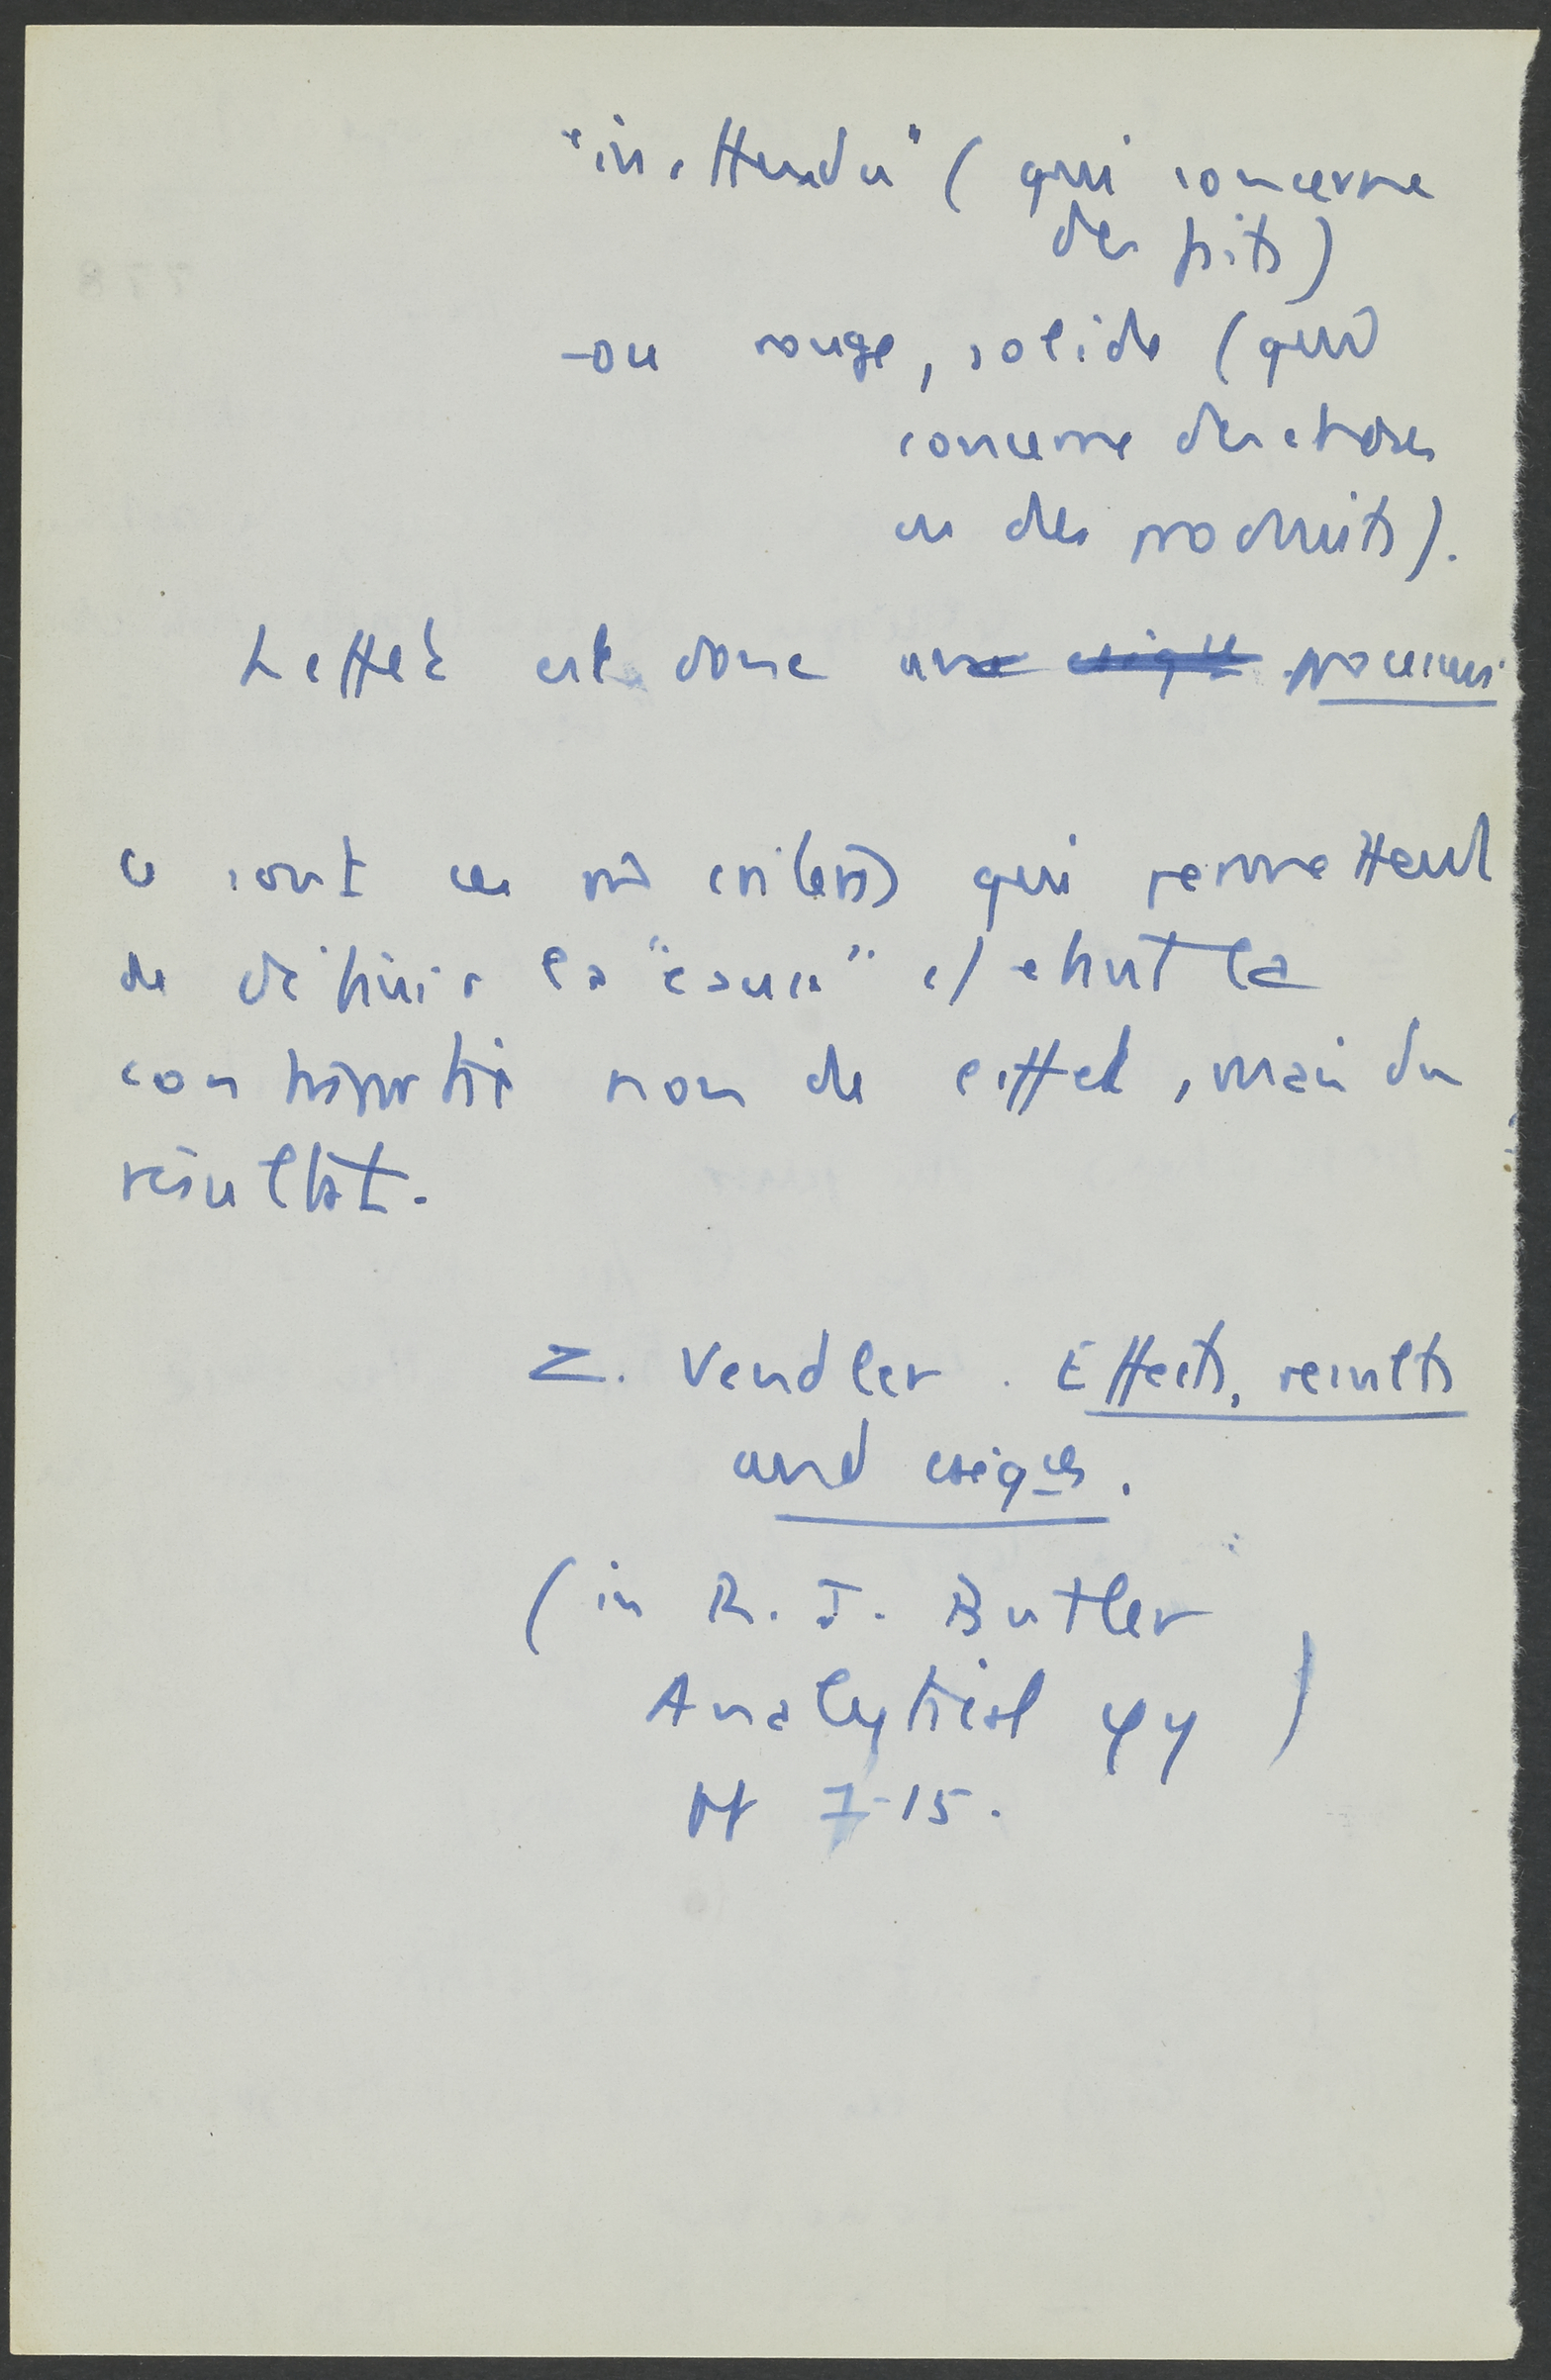 "inattendu" (qui concerne
des faits)
- ou rouge, solide (qui
concerne des choses
ou des produits).
L'effet est donc un processus
Ce sont ces critères qui permettent
de définir la "cause" c/ étant la
contrepartie non de l'effet, mais du
résultat.
Z. Vendler. Effects, results
and
(in R. J. Butler
Analytical φy)
pp 7-15.